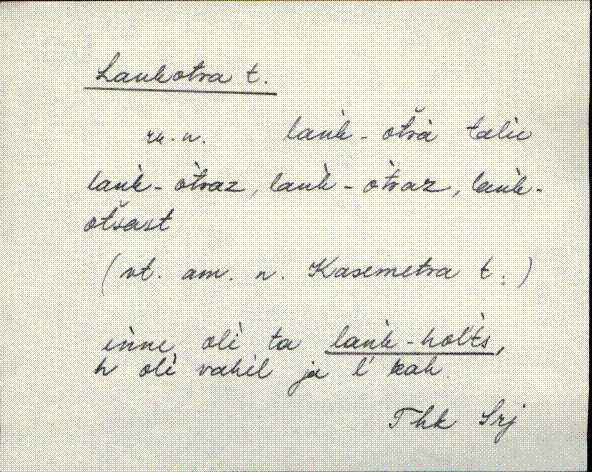 Lankotra t.
rk.n. lank̀ - òtrà talu
lank̀ - òtraz, lank̀ - òtraz, lank̀ -
otsast
(vt. am. n. Kasemetra t.)
ènne olì ta lank̀ - hol̀ts,
h olì vahèl ja l' kah.
Thk Srj